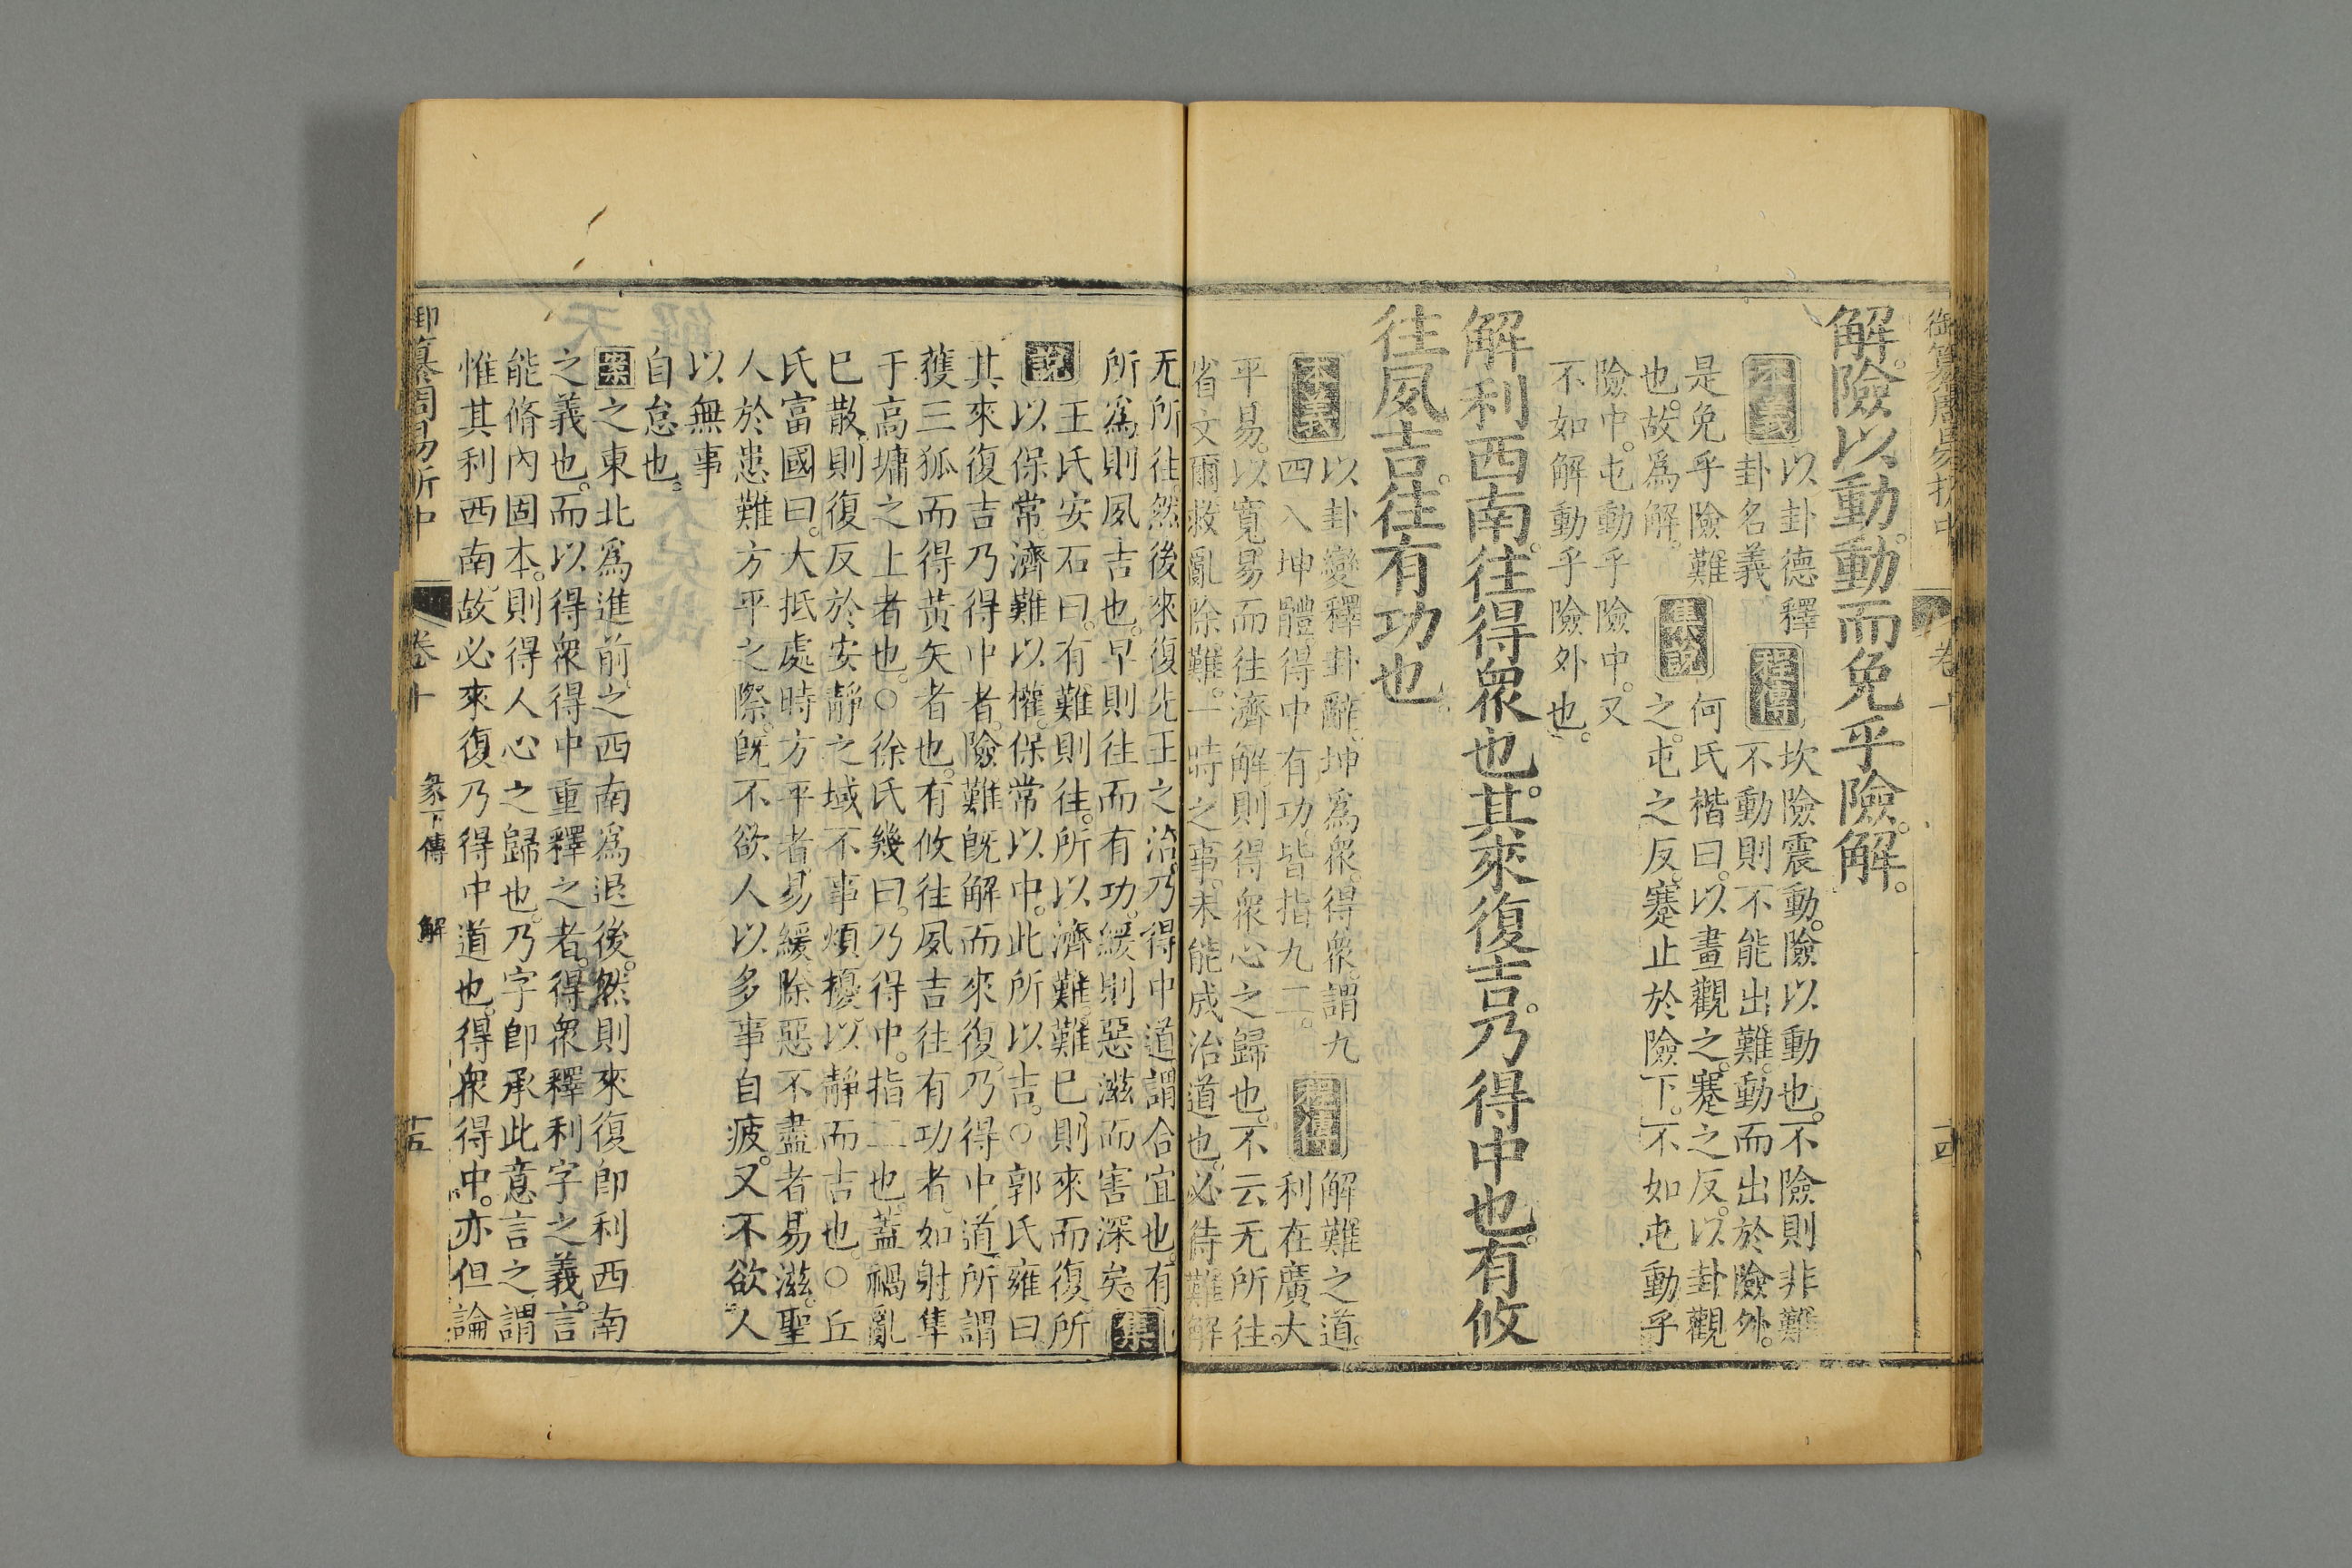 御纂周易折中 卷十 十四
解。險以動。動而免乎險。解。
本義 以卦德釋
卦名義
程傳 坎險震動。險以動也。不險則非難
不動則不能出難。動而出於險外。
是免乎險難
也。故爲解。
集說 何氏楷曰。以畫觀之。蹇之反。以卦觀
之。屯之反。蹇止於險下。不如屯動乎
險中。屯動乎險中。又
不如解動乎險外也。
解利西南。往得衆也。其來復吉。乃得中也。有攸
往夙吉。往有功也。
本義 以卦變釋卦辭。坤爲衆。得衆。謂九
四入坤體。得中有功。皆指九二。
程傳 解難之道。
利在廣大
平易。以寬易而往濟解。則得衆心之歸也。不云无所往。
省文爾。救亂除難。一時之事。未能成治道也。必待難解
无所往。然後來復先王之治。乃得中道。謂合宜也。有
所爲則夙吉也。早則往而有功。緩則惡滋而害深矣。集
說 王氏安石曰。有難則往。所以濟難。難已則來而復。所
以保常。濟難以權。保常以中。此所以吉。○郭氏雍曰。
其來復吉。乃得中者。險難既解而來復。乃得中道。所謂
獲三狐而得黃矢者也。有攸往夙吉。往有功者。如射隼
于高墉之上者也。○徐氏幾曰。乃得中。指二也。蓋禍亂
已散。則復反於安靜之域。不事煩擾。以靜而吉也。○丘
氏富國曰。大抵處時方平者。易緩。除惡不盡者。易滋。聖
人於患難方平之際。既不欲人以多事自疲。又不欲人
以無事
自怠也。
案 之東北爲進前。之西南爲退後。然則來復卽利西南
之義也。而以得衆得中重釋之者。得衆釋利字之義。言
能脩內固本。則得人心之歸也。乃字卽承此意言之。謂
惟其利西南。故必來復乃得中道也。得衆得中。亦但論
御纂周易折中 卷十 彖下傳 解 十五